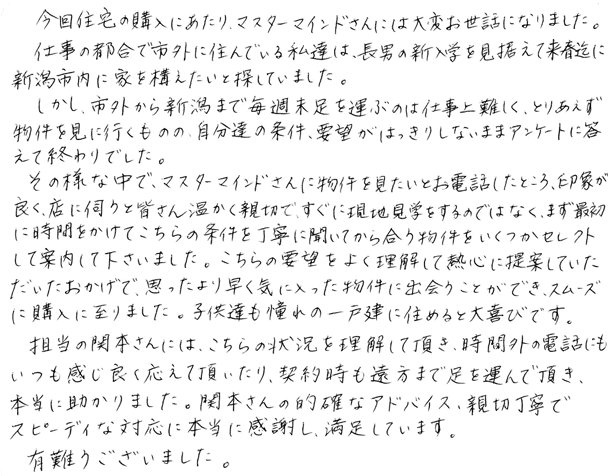 今回住宅の購入にあたり、マスターマインドさんには大変お世話になりました。
仕事の都合で市外に住んでいる私達は、長男の新入学を見据えて来春迄に
新潟市内に家を構えたいと探していました。
しかし、市外から新潟まで毎週末足を運ぶのは仕事上難しく、とりあえず
物件を見に行くものの、自分達の条件、要望がはっきりしないままアンケートに答
えて終わりでした。
その様な中で、マスターマインドさんに物件を見たいとお電話したところ、印象が
良く、店に伺うと皆さん温かく親切で、すぐに現地見学をするのではなく、まず最初
に時間をかけてこちらの条件を丁寧に聞いてから合う物件をいくつかセレクト
して案内して下さいました。こちらの要望をよく理解して熱心に提案していた
だいたおかげで、思ったより早く気に入った物件に出会うことができ、スムーズ
に購入に至りました。子供達も憧れの一戸建に住めると大喜びです。
担当の関本さんには、こちらの状況を理解して頂き、時間外の電話にも
いつも感じ良く応えて頂いたり、契約時も遠方まで足を運んで頂き、
本当に助かりました。関本さんの的確なアドバイス、親切丁寧で
スピーディな対応に本当に感謝し、満足しています。
有難うございました。